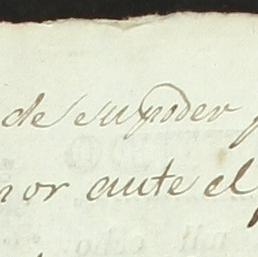 de su poder
or ante el